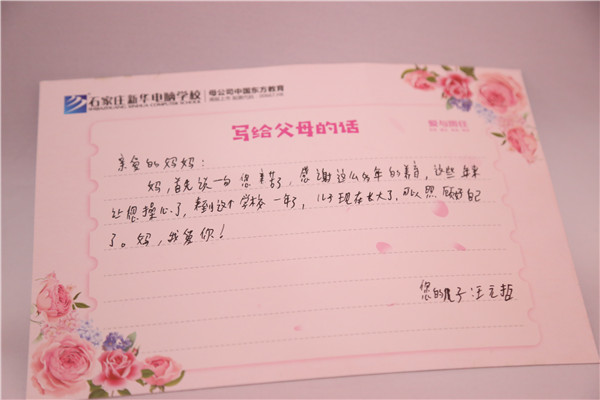 石家庄新华电脑学校 母公司中国东方教育
SHIJIAZHUANG XINHUA COMPUTER SCHOOL
写给父母的话
爱与责任
亲爱的妈妈：
妈，首先说一句您辛苦了，感谢这么多年的养育，这些年来
让您操心了，来到这个学校一年了，儿子现在长大了，可以照顾好自己
了。妈，我爱你！
您的儿子：汪文哲